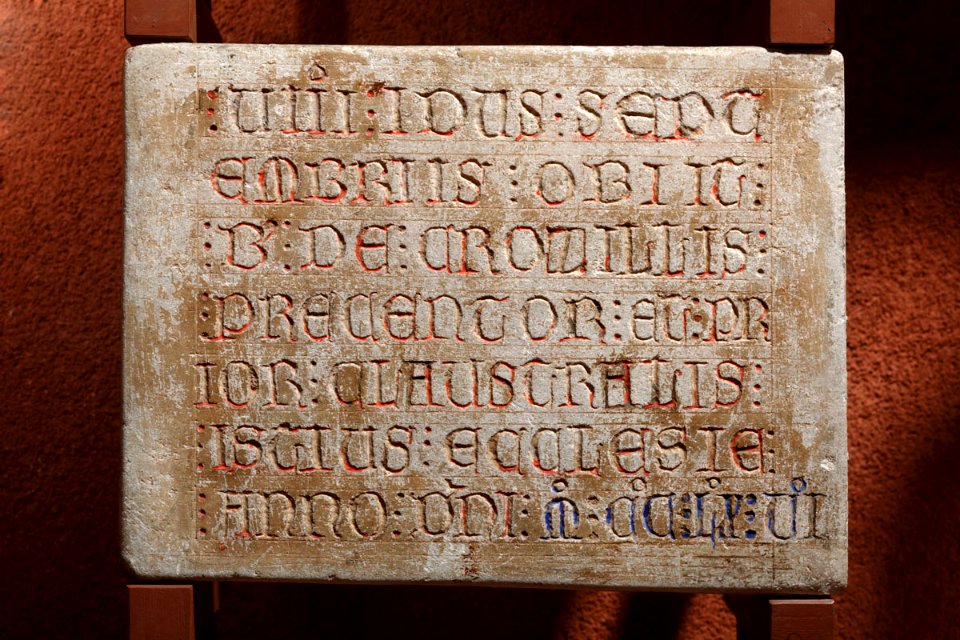 : UIIIº : IDUS : SEPT
EMBRIIS : OBIIT :
: B' : DE : CROZILLIS :
: PRECENTOR : ET : PR
IOR : CLAUSTRALIS :
: ISTIUS : ECCLESIE :
: ANNO : DNI : Mº : CCº : LXº : UIº I